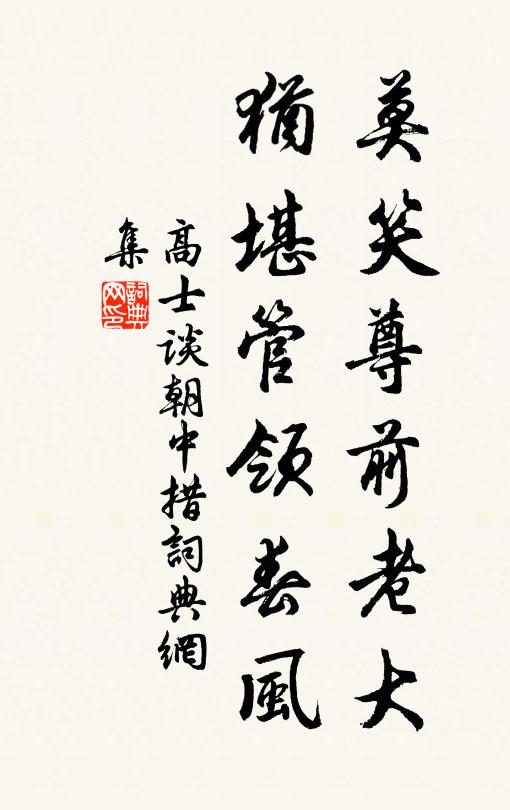 莫笑尊前老大
猶堪管領春風
高士談朝中措詞典網
集
詞典
网印